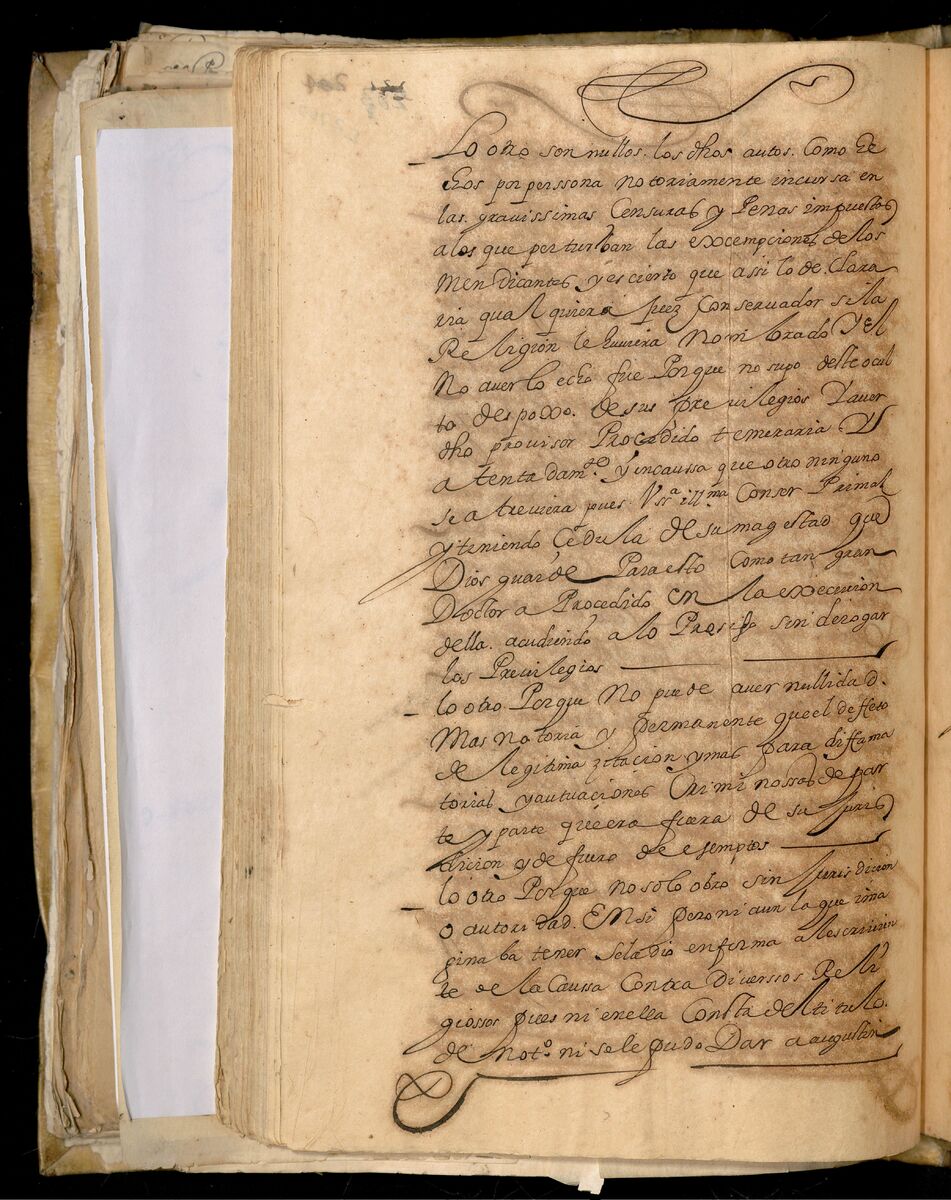 Lo otro son nullos. los dhos autos. Como he
chos por perssona notoriamente incursa en
las. grauissimas Censuras y Penas impuestas
a los que perturban las excempciones de los
Mendicantes y es cierto que assi lo de. Clara
ria qualquiera juez Conseruador si la
Religion le huuiera nombrado Y el
No auerlo echo fue Porque no supo deste ocul
to despoxo. de sus preuilegios Y auer
dho prouisor Procedido temeraria Y
atentadamte. y in caussa que otro ninguno
se atreuiera pues Vsra. illma Con ser Primal
y teniendo Cedula de su magestad que
Dios guarde Para esto Como tan gran
Doctor a Procedido en la execucion
della. acudiendo a lo Preciso sin derogar
los Preuilegios
lo otro Porque No puede auer nullidad.
Mas notoria y permanente que el deffeto
de legitima zitacion y mas para diffama
torias y autuaciones Criminossas de par
te y parte que era fuera de su juris
dicion y de fuero de esemptos
lo otro Porque no solo obro sin jurisdicion
o autoridad. En si pero ni aun la que ima
ginaba tener se la dio en forma al escriuien
te de la Caussa Contra Diuerssos Reli
giossos pues ni en ella Consta del titulo.
de noto. ni se le pudo Dar a augustin